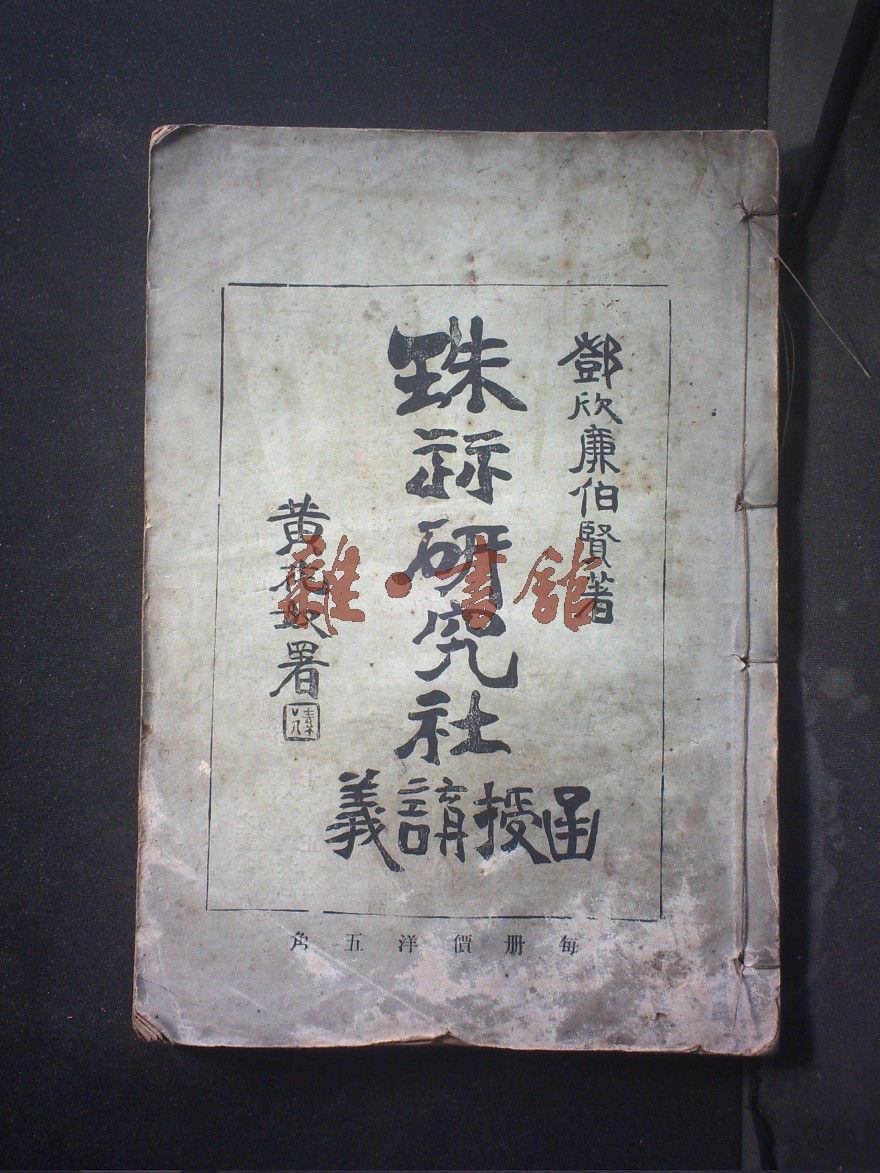 鄧欣廉伯賢著
珠祘研究社
函授講義
黄花奴署
每册價洋五角
雜·書館